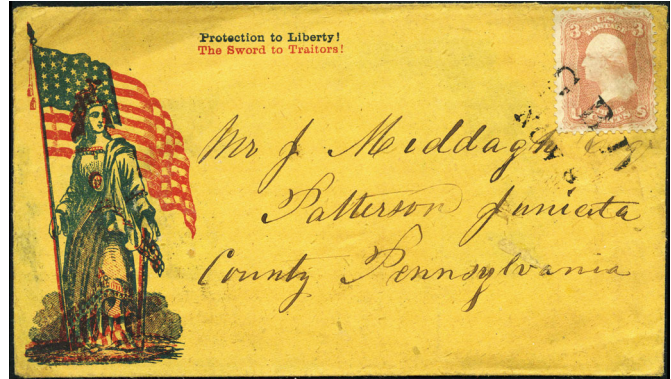 Protection to Liberty!
The Sword to Traitors!
3 3
U.S.
POSTAGE
Mr J. Middagh
Patterson Juniata
County Pennsylvania